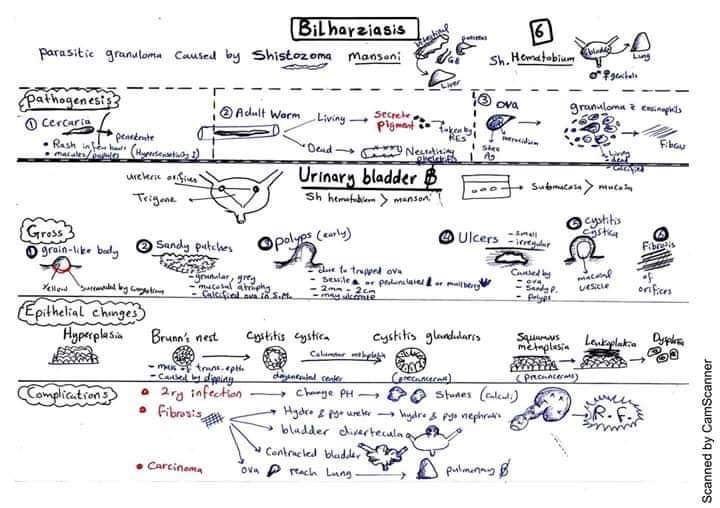 Bilharziasis
6
parasitic granuloma caused by Shistozoma Mansoni
intestinal
pancreas
GB
Liver
Sh. Hematobium
bladder
Lung
♂ ♀ genitals
Pathogenesis
① Cercaria
penetrate
• Rash in few hours
• macules/papules (Hypersensitivity I)
② Adult Worm
Living → Secrete pigment → taken by RES
Dead → Necrotising phelebitis
③ ova
miracidium
Ag
granuloma c̄ eosinophils
- Living
- dead
- calcified
Urinary bladder B
Sh hematobium > mansoni
ureteric orifices
Trigone
Submucosa > mucosa
Gross
① grain-like body
Yellow
surrounded by
② Sandy patches
- granular, grey
- mucosal atrophy
- Calcified ova in S.M.
③ polyps (early)
- due to trapped ova
- Sessile or pedunculated or mulberry
- 2mm - 2cm
- may ulcerate
④ Ulcers
- small
- irregular
Caused by
- ova
- Sandy p.
- polyps
⑤ cystitis cystica
mucosal vesicle
⑥ Fibrosis
of orifices
Epithelial chinges
Hyperplasia
Brunn's nest
- mass of trans. epth
- Caused by dipping
Cystitis cystica
degenerated center
Columnar metaplasia
Cystitis glandularis
(precancerous)
Squamus metaplasia
(precancerous)
Leukoplakia
Dysplasia
Complications
• 2ry infection → Change PH → Stones (calculi)
• Fibrosis
Hydro & pyo ureter → hydro & pyo nephrosis
bladder diverticula
Contracted bladder
R.F.
• Carcinoma
ova reach Lung → pulmonary B
Scanned by CamScanner